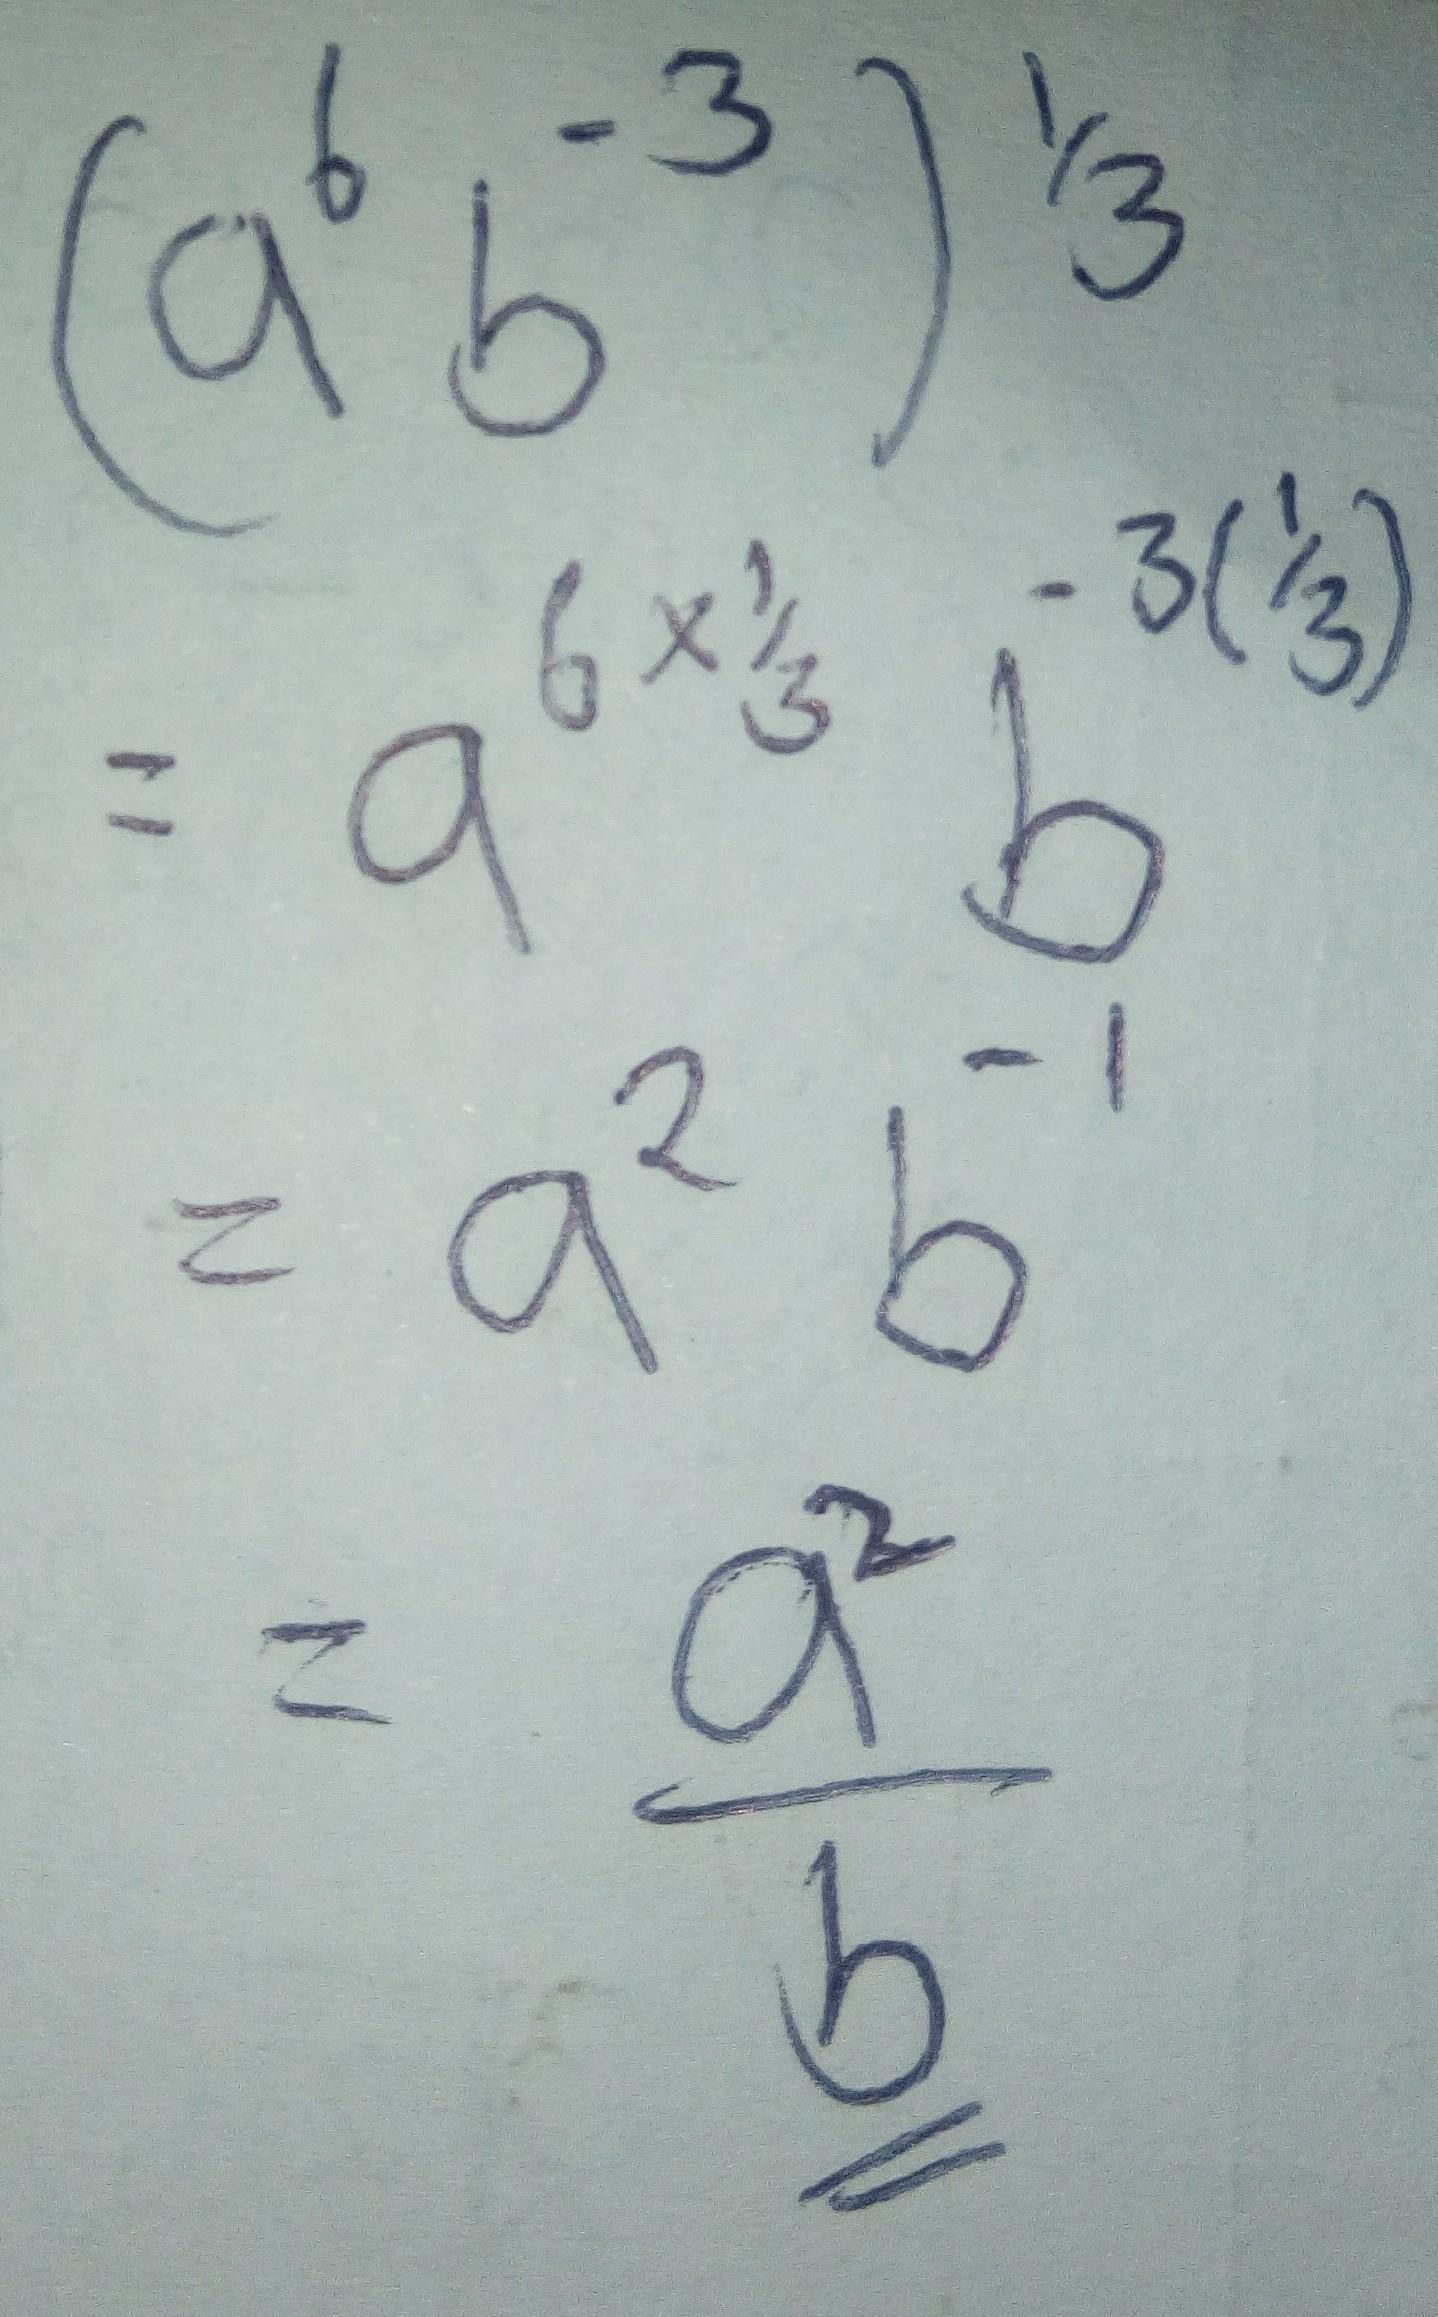 (a⁶ b⁻³)^⅓
= a^(6×⅓) b^(-3(⅓))
= a² b⁻¹
= a²/b